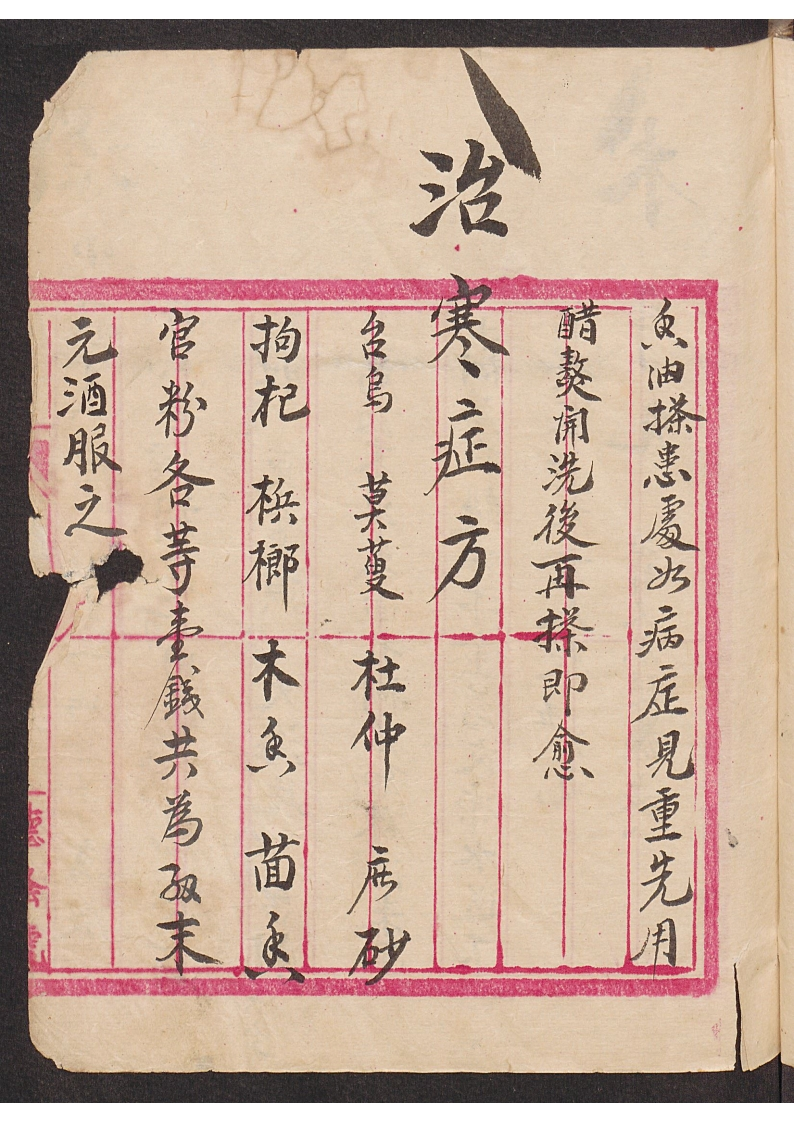 香油搽患處如病症見重先用
醋熬開洗後再搽即愈
治寒症方
台烏 莫蔓 杜仲 砂
拘杞 梹榔 木香 茴香
官粉各等壹錢共為細末
元酒服之